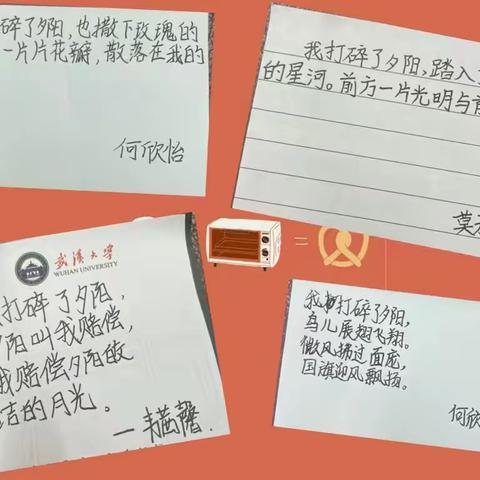 碎了夕阳,也撒下玫瑰的
一片片花瓣,散落在我的
何欣怡
我打碎了夕阳,踏入
的星河。前方一片光明与
莫
武漢大学
WUHAN UNIVERSITY
打碎了夕阳,
阳叫我赔偿,
我赔偿夕阳皎
洁的月光。
我打碎了夕阳,
鸟儿展翅飞翔。
微风拂过面庞,
国旗迎风飘扬。
何欣